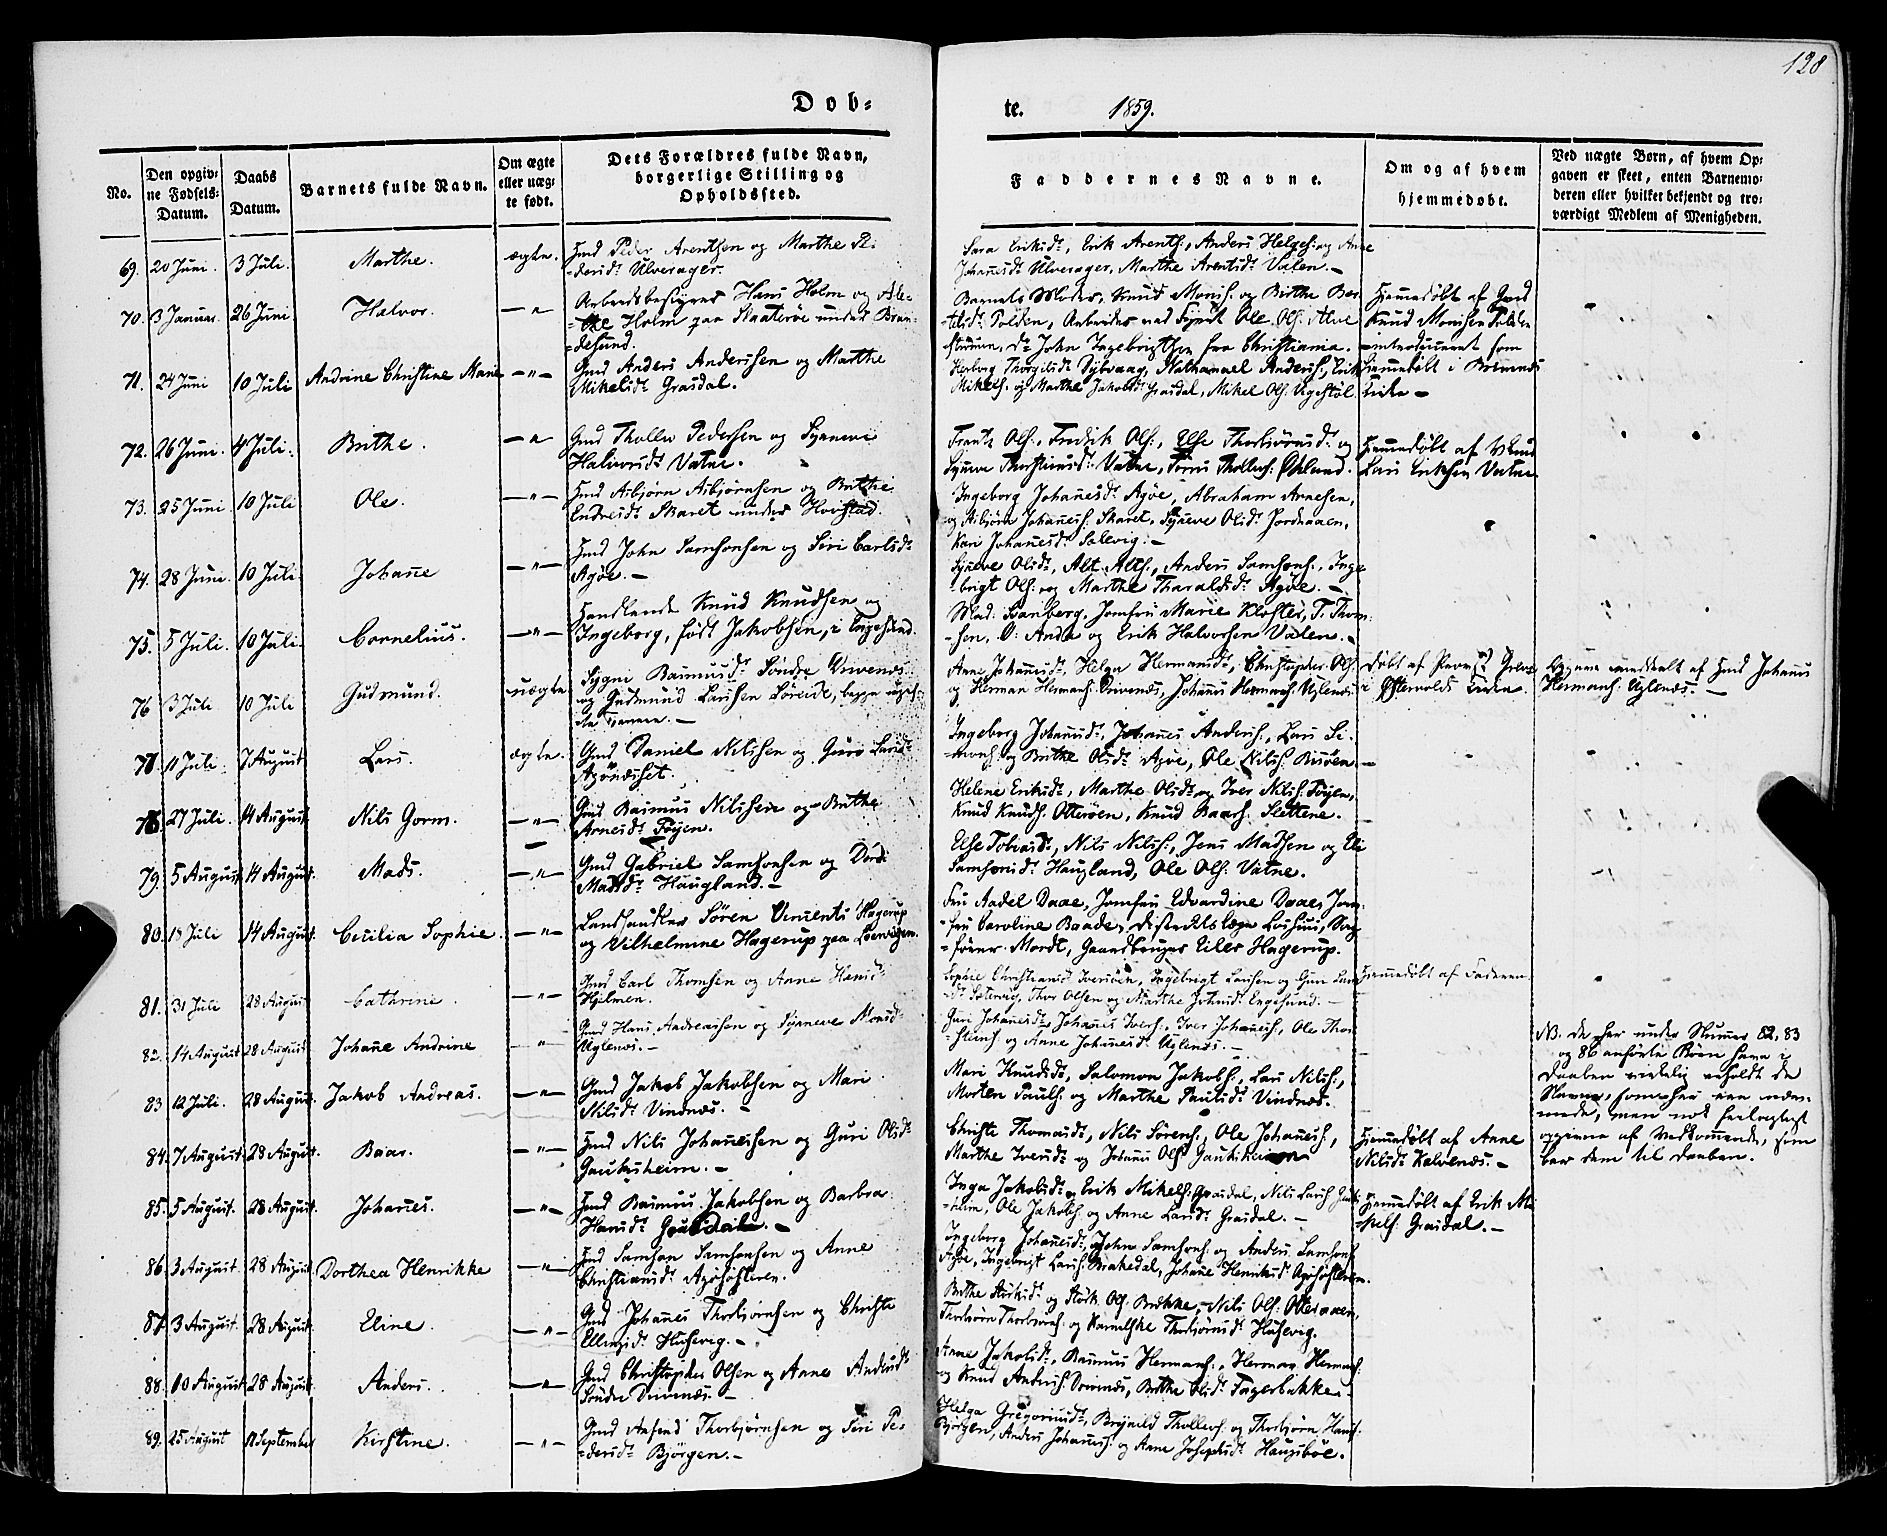 128
Døb-
te.
1859.
No.
Den opgiv-
ne Fødsels-
Datum.
Daabs
Datum.
Barnets fulde Navn.
Om ægte
eller uæg-
te født.
Dets Forældres fulde Navn,
borgerlige Stilling og
Opholdssted.
Faddernes Navne.
Om og af hvem
hjemmedøbt.
Ved uægte Børn, af hvem Op-
gaven er skeet, enten Barnemo-
deren eller hvilket bekjendt og tro-
værdigt Medlem af Menigheden.
69. 20 Juni. 3 Juli. Marthe. ægte. Hmd Peder Arentsen og Marthe Pe-
dersdt Ulverager.
Sara Eriksdt, Erik Arents:, Anders Helges: og Anne
Johañesdt Ulverager, Marthe Arentsdt Valen. —
70. 3 Januar. 26 Juni Halvor. — " Arbeidsbestyrer Hans Holm og Ale-
the Holm paa Slaaterøe under Bran-
desund.
Barnets Moder, Knud Mons: og Brithe Bar-
telsdt Tolden, Arbeider ved Fyret Ole Ols: Alve
-struen, Do John Ingebrigtsen fra Christiania.
Hjemmedøbt af Gmd
Knud Monsen Tolden
-introduceret som
hjemmedøbt i Bremnes
Kirke —
71. 24 Juni 10 Juli Andrine Christine Marie — " — Gmd Anders Anderssen og Marthe
Mikelsdt Grasdal.
Herborg Thorgilsdt Dybvaag, Nathanael Anders:, Erik
Mikels: og Marthe Jakobsdt Grasdal, Mikel Ols: Vigestøl.
72. 26 Juni. 4 Juli. Brithe. — " Gmd Tholler Pedersen og Synneve
Halvorsdt Vatne.
Frantz Ols:, Fredrik Ols:, Else Thorbiørnsdt og
Synneve Thorsteinsdt Vatne, Tollers: Økland.
Hjemmedøbt af
Lars Eriksen Vatne
73. 25 Juni 10 Juli Ole. — " — Hmd Asbjørn Asbjørnsen og Brithe
Endresdt Skaret under Hovstad.
Ingeborg Johañesdt Agøe, Abraham Arnesen,
og Asbjørn Johañes: Skaret, Synneve Olsdt Jordaaen,
Kari Johañesdt Salevig. —
74. 28 Juni. 10 Juli. Johañe — " — Hmd John Samsonsen og Siri Carlsdt
Agøe. —
Synneve Olsdt, Alt Alts:, Anders Samsons:, Inge
-brigt Ols: og Marthe Tharaldsdt Agøe. —
75. 5 Juli. 10 Juli. Cornelius. — " — Handlende Knud Knudsen og
Ingeborg, født Jakobsen, i Engesund.
Mad: Svanberg, Jomfru Marie Kloster, T. Thom-
-sen, O: Anda og Erik Halvorsen Valen. —
76 3 Juli 10 Juli Gudmund. uægte Sygni Rasmusdt Søndre Drivenes
og Gudmund Larsen Søreide, begge ugif-
te Tjenere. —
Anne Johañesdt, Helga Hermansdt, Christopher Ols:
og Herman Hermans: Drivenes, Johañes Hermans: Uglenes.
døbt af
Østervolds Kirken.
Opgave meddeelt af Hmd Johañes
Hermans: Uglenes. —
77. 11 Juli. 7 August Lars. ægte. Gmd Daniel Nilssen og Guro Larsdt
Agønesset.
Ingeborg Johañesdt, Johañes Anders:, Lars Si-
mons: og Brithe Olsdt Agøe, Ole Nils: Risøen. —
78. 27 Juli. 14 August. Nils Gorm. — " — Gmd Rasmus Nilssen og Brithe
Arnesdt Føyen.
Helene Eriksdt, Marthe Olsdt og Iver Nils: Føyen,
Knud Knuds: Otterøen, Knud Baars: Slettene.
79. 5 August 14 August. Mads. — " — Gmd Gabriel Samsonsen og Dord.
Madsdt Haugland. —
Else Tobiasdt, Nils Nils:, Jens Madsen og Eli
Samsonsdt Haugland, Ole Ols: Vatne.
80. 18 Juli 14 August. Cecilia Sophie. — " — Landhandler Søren Vincents Hagerup
og Vilhelmine Hagerup paa Leervigen.
Fru Aadel Daae, Jomfru Edvardine Daae, Jom-
-fru Caroline Baade, Distriktslæge Loshius, Sag-
-fører Mordt, Gaardbruger Eiler Hagerup.
81. 31 Juli 28 August Cathrine. — " — Gmd Carl Thomsen og Anne Hansdt
Hjelmen.
Sophie Christiansdt Iversøen, Ingebrigt Larsen og Guri Lars
-dt Sætervig, Thor Olsen og Marthe Johñsdt Engesund. —
Hjemmedøbt af Faderen
82. 14 August 28 August. Johañe Andrine — " Gmd Hans Andreassen og Synneve Monsdt
Uglenes. —
Guri Johañesdt, Johañes Ivers:, Iver Johañes:, Ole Thor-
steins: og Anne Johañesdt Uglenes. —
NB. de her under Nummer 82, 83
og 86 anførte Børn have i
Daaben virkelig erholdt de
Navne, som her ere næv-
nede, men nok feilagtigt
opgivne af Vedkommende, som
bar dem til Daaben.
83 12 Juli. 28 August Jakob Andreas. — " — Gmd Jakob Jakobsen og Mari
Nilsdt Vindnes. —
Mari Knudsdt, Salomon Jakobs:, Lars Nils:,
Morten Pauls: og Marthe Paulsdt Vindnes.
84. 7 August. 28 August. Baar. — " — Hmd Nils Johañessen og Guri Olsdt
Gaukusheim. —
Christe Thomasdt, Nils Sørens:, Ole Johañes:,
Marthe Iversdt og Johañes Ols: Gaukusheim
Hjemmedøbt af Anne
Nilsdt Kalvenes. —
85. 5 August. 28 August. Johañes. — " — Hmd Rasmus Jakobsen og Barbra
Hansdt Grasdal. —
Inga Jakobsdt og Erik Mikels: Grasdal, Nils Lars: Gauk-
-heim, Ole Jakobs: og Anne Larsdt Grasdal. —
Hjemmedøbt af Erik Mi
-kels: Grasdal. —
86. 3 August. 28 August Dorthea Henrikke — " — Hmd Samson Samsonsen og Anne
Christiansdt Agøhosteren.
Ingeborg Johañesdt, John Samsons: og Anders Samsons:
Agøe, Ingebrigt Lars: Brakedal, Johañe Henriksdt Agøhosteren.
87. 3 August. 28 August. Eline. — " — Gmd Johañes Thorbjørnsen og Christe
Ellingsdt Husevig. —
Brithe Størksdt og Størk Ols: Bukke, Nils Ols: Otteraaen,
Thorbiørn Thorbiørns: og Karnelske Thorbiørnsdt Husevig.
88. 10 August. 28 August. Anders. — " — Gmd Christopher Olsen og Anne Andersdt
Søndre Drivenes. —
Anne Jakobsdt, Rasmus Hermans:, Herman Hermans:
og Knud Anders: Drivenes, Brithe Olsdt Fagerbakke. —
89. 25 August 11 September Kirstine. — " — Gmd Anfind Thorbjørnsen og Siri Pe-
-dersdt Bjørgen. —
Helga Gregoriusdt, Brynild Thollers: og Thorbjørn Hans:
Bjørgen, Anders Johañes: og Anne Josephsdt Haugsbøe.